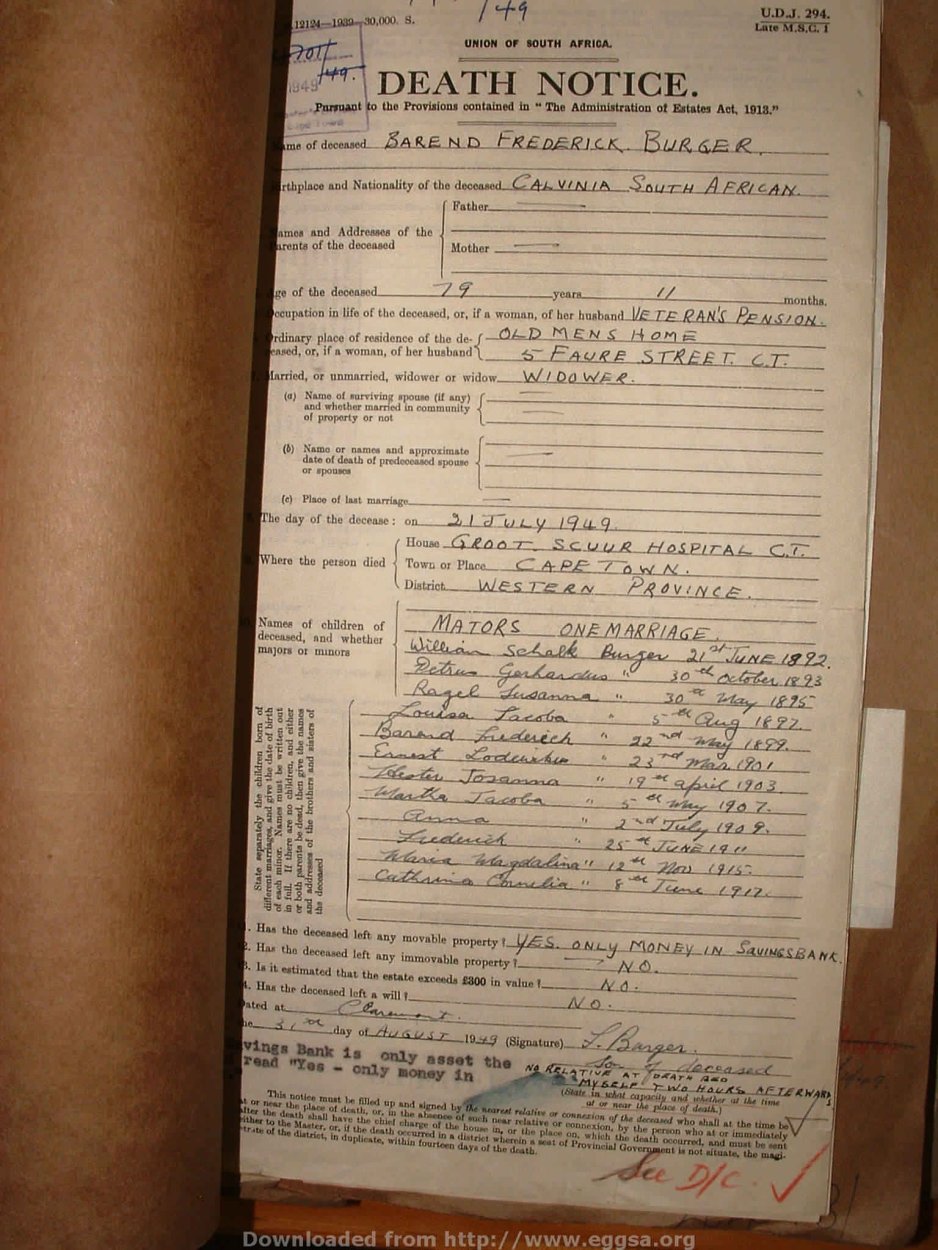 /49
12124—1939—30,000. S.
U.D.J. 294.
Late M.S.C. 1
UNION OF SOUTH AFRICA.
/49.
1949
DEATH NOTICE.
Pursuant to the Provisions contained in "The Administration of Estates Act, 1913."
ame of deceased BAREND FREDERICK BURGER.
irthplace and Nationality of the deceased CALVINIA SOUTH AFRICAN.
Father
ames and Addresses of the
arents of the deceased
Mother
ge of the deceased 79 years 11 months.
ccupation in life of the deceased, or, if a woman, of her husband VETERAN'S PENSION.
rdinary place of residence of the de- OLD MENS HOME
eased, or, if a woman, of her husband 5 FAURE STREET. C.T.
Married, or unmarried, widower or widow WIDOWER.
(a) Name of surviving spouse (if any)
and whether married in community
of property or not
(b) Name or names and approximate
date of death of predeceased spouse
or spouses
(c) Place of last marriage
The day of the decease: on 21 JULY 1949.
House GROOT. SCUUR HOSPITAL C.T.
Where the person died Town or Place CAPE TOWN.
District WESTERN PROVINCE.
Names of children of
deceased, and whether
majors or minors
MATORS ONE MARRIAGE.
William Schalk Burger 21st JUNE 1892.
Petrus Gerhardus " 30th October 1893
Ragel Susanna " 30th May 1895
Louisa Jacoba " 5th Aug 1897.
Barend Frederich " 22nd May 1899.
Ernest Lodewikus " 23rd Mar. 1901
Hester Josanna " 19th april 1903.
Martha Jacoba " 5th May 1907.
Anna " 2nd July 1909.
Frederich " 25th JUNE 1911
Maria Magdalina " 12th Nov 1915.
Cathrina Cornelia " 8th June 1917.
State separately the children born of
different marriages, and give the date of birth
of each minor. Names must be written out
in full. If there are no children, and either
or both parents be dead, then give the names
and addresses of the brothers and sisters of
the deceased
1. Has the deceased left any movable property? YES. ONLY MONEY IN SAVINGSBANK.
2. Has the deceased left any immovable property? NO.
3. Is it estimated that the estate exceeds £300 in value? NO.
4. Has the deceased left a will? NO.
ated at Claremont.
he 31st day of AUGUST 1949 (Signature) F. Burger.
Son of deceased
vings Bank is only asset the
read "Yes - only money in
NO RELATIVE AT DEATH BED
MYSELF TWO HOURS AFTERWARDS
(State in what capacity and whether at the time
at or near the place of death.)
This notice must be filled up and signed by the nearest relative or connexion of the deceased who shall at the time be
at or near the place of death, or, in the absence of such near relative or connexion, by the person who at or immediately
after the death shall have the chief charge of the house in, or the place on, which the death occurred, and must be sent
either to the Master, or, if the death occurred in a district wherein a seat of Provincial Government is not situate, the magi-
strate of the district, in duplicate, within fourteen days of the death.
See D/C.
Downloaded from http://www.eggsa.org